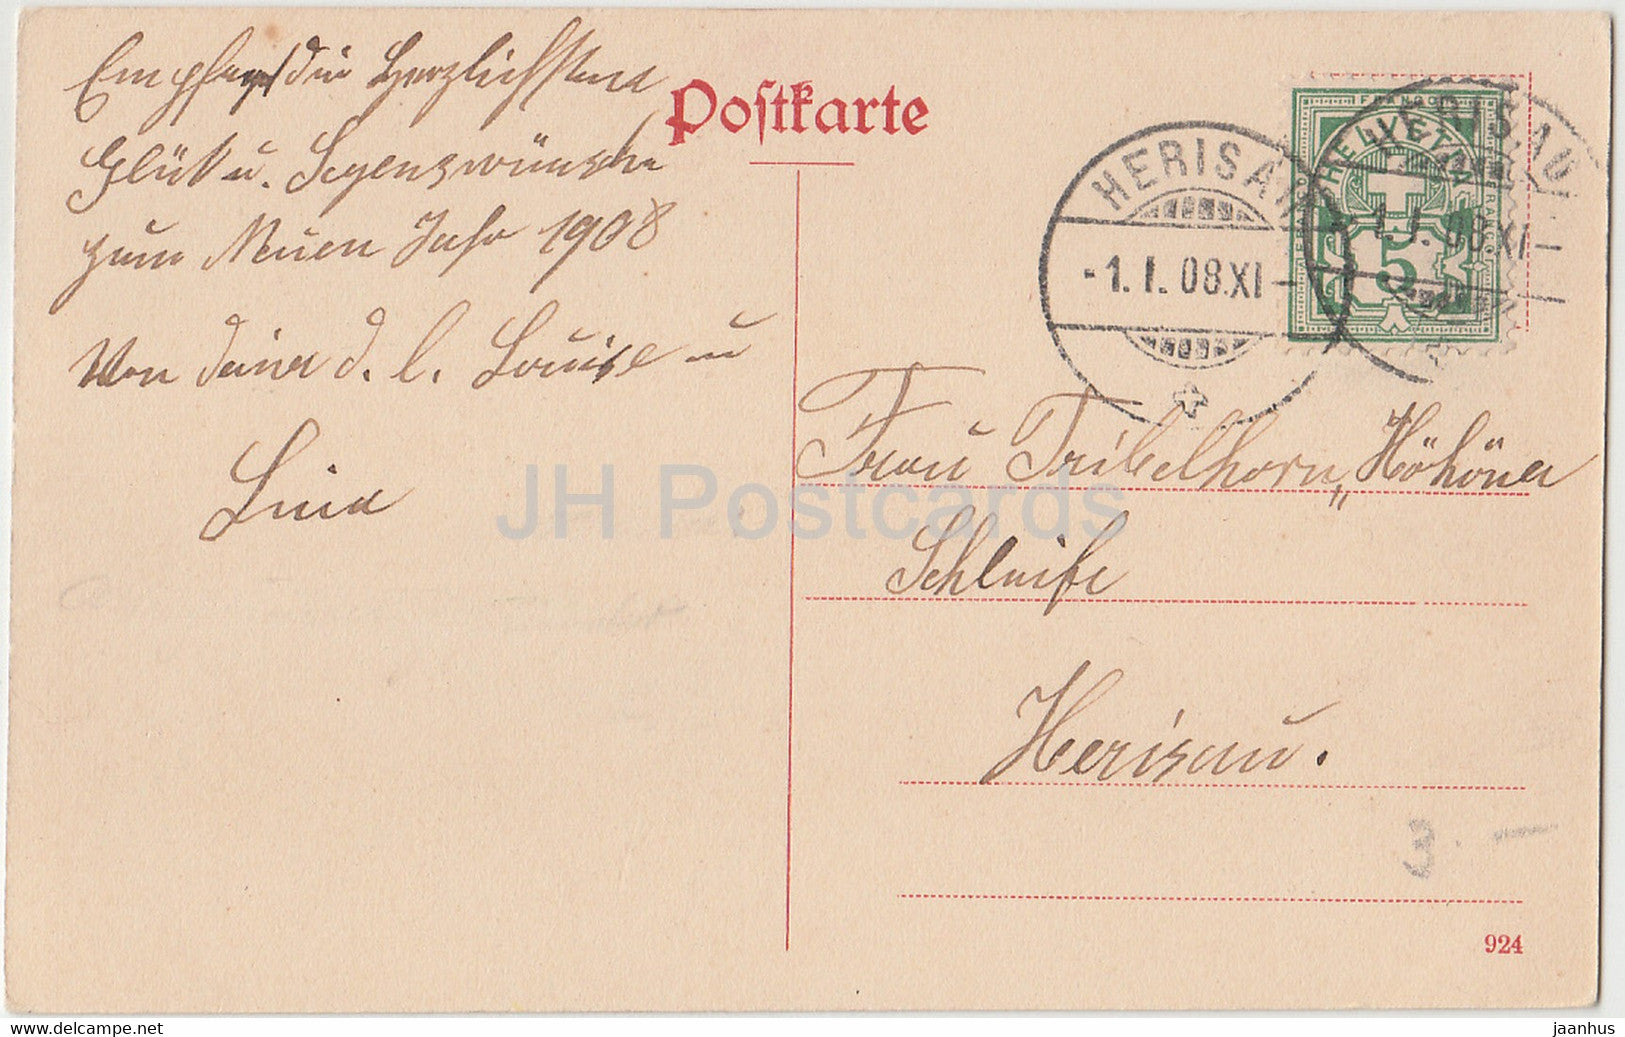 Empfangt die Herzlichsten
Glük u. Segenswünsche
zum Neuen Jahr 1908
Von deiner d. l. Louise u
Lina
Postkarte
HERISAU
-1.I.08.XI-
HERISAU
-1.I.08.XI-
FRANCO
HELVETIA
FRANCO
5
Frau Tribelhorn, Höhöner
Schleife
Herisau.
3.-
924
JH Postcards
hipstamp.com/store/jaanhus
jaanhus